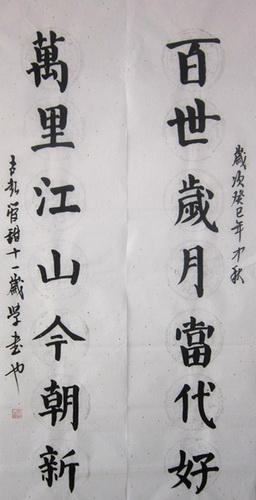 歲次癸巳年中秋
百世歲月當代好
萬里江山今朝新
管甜十一歲学書也